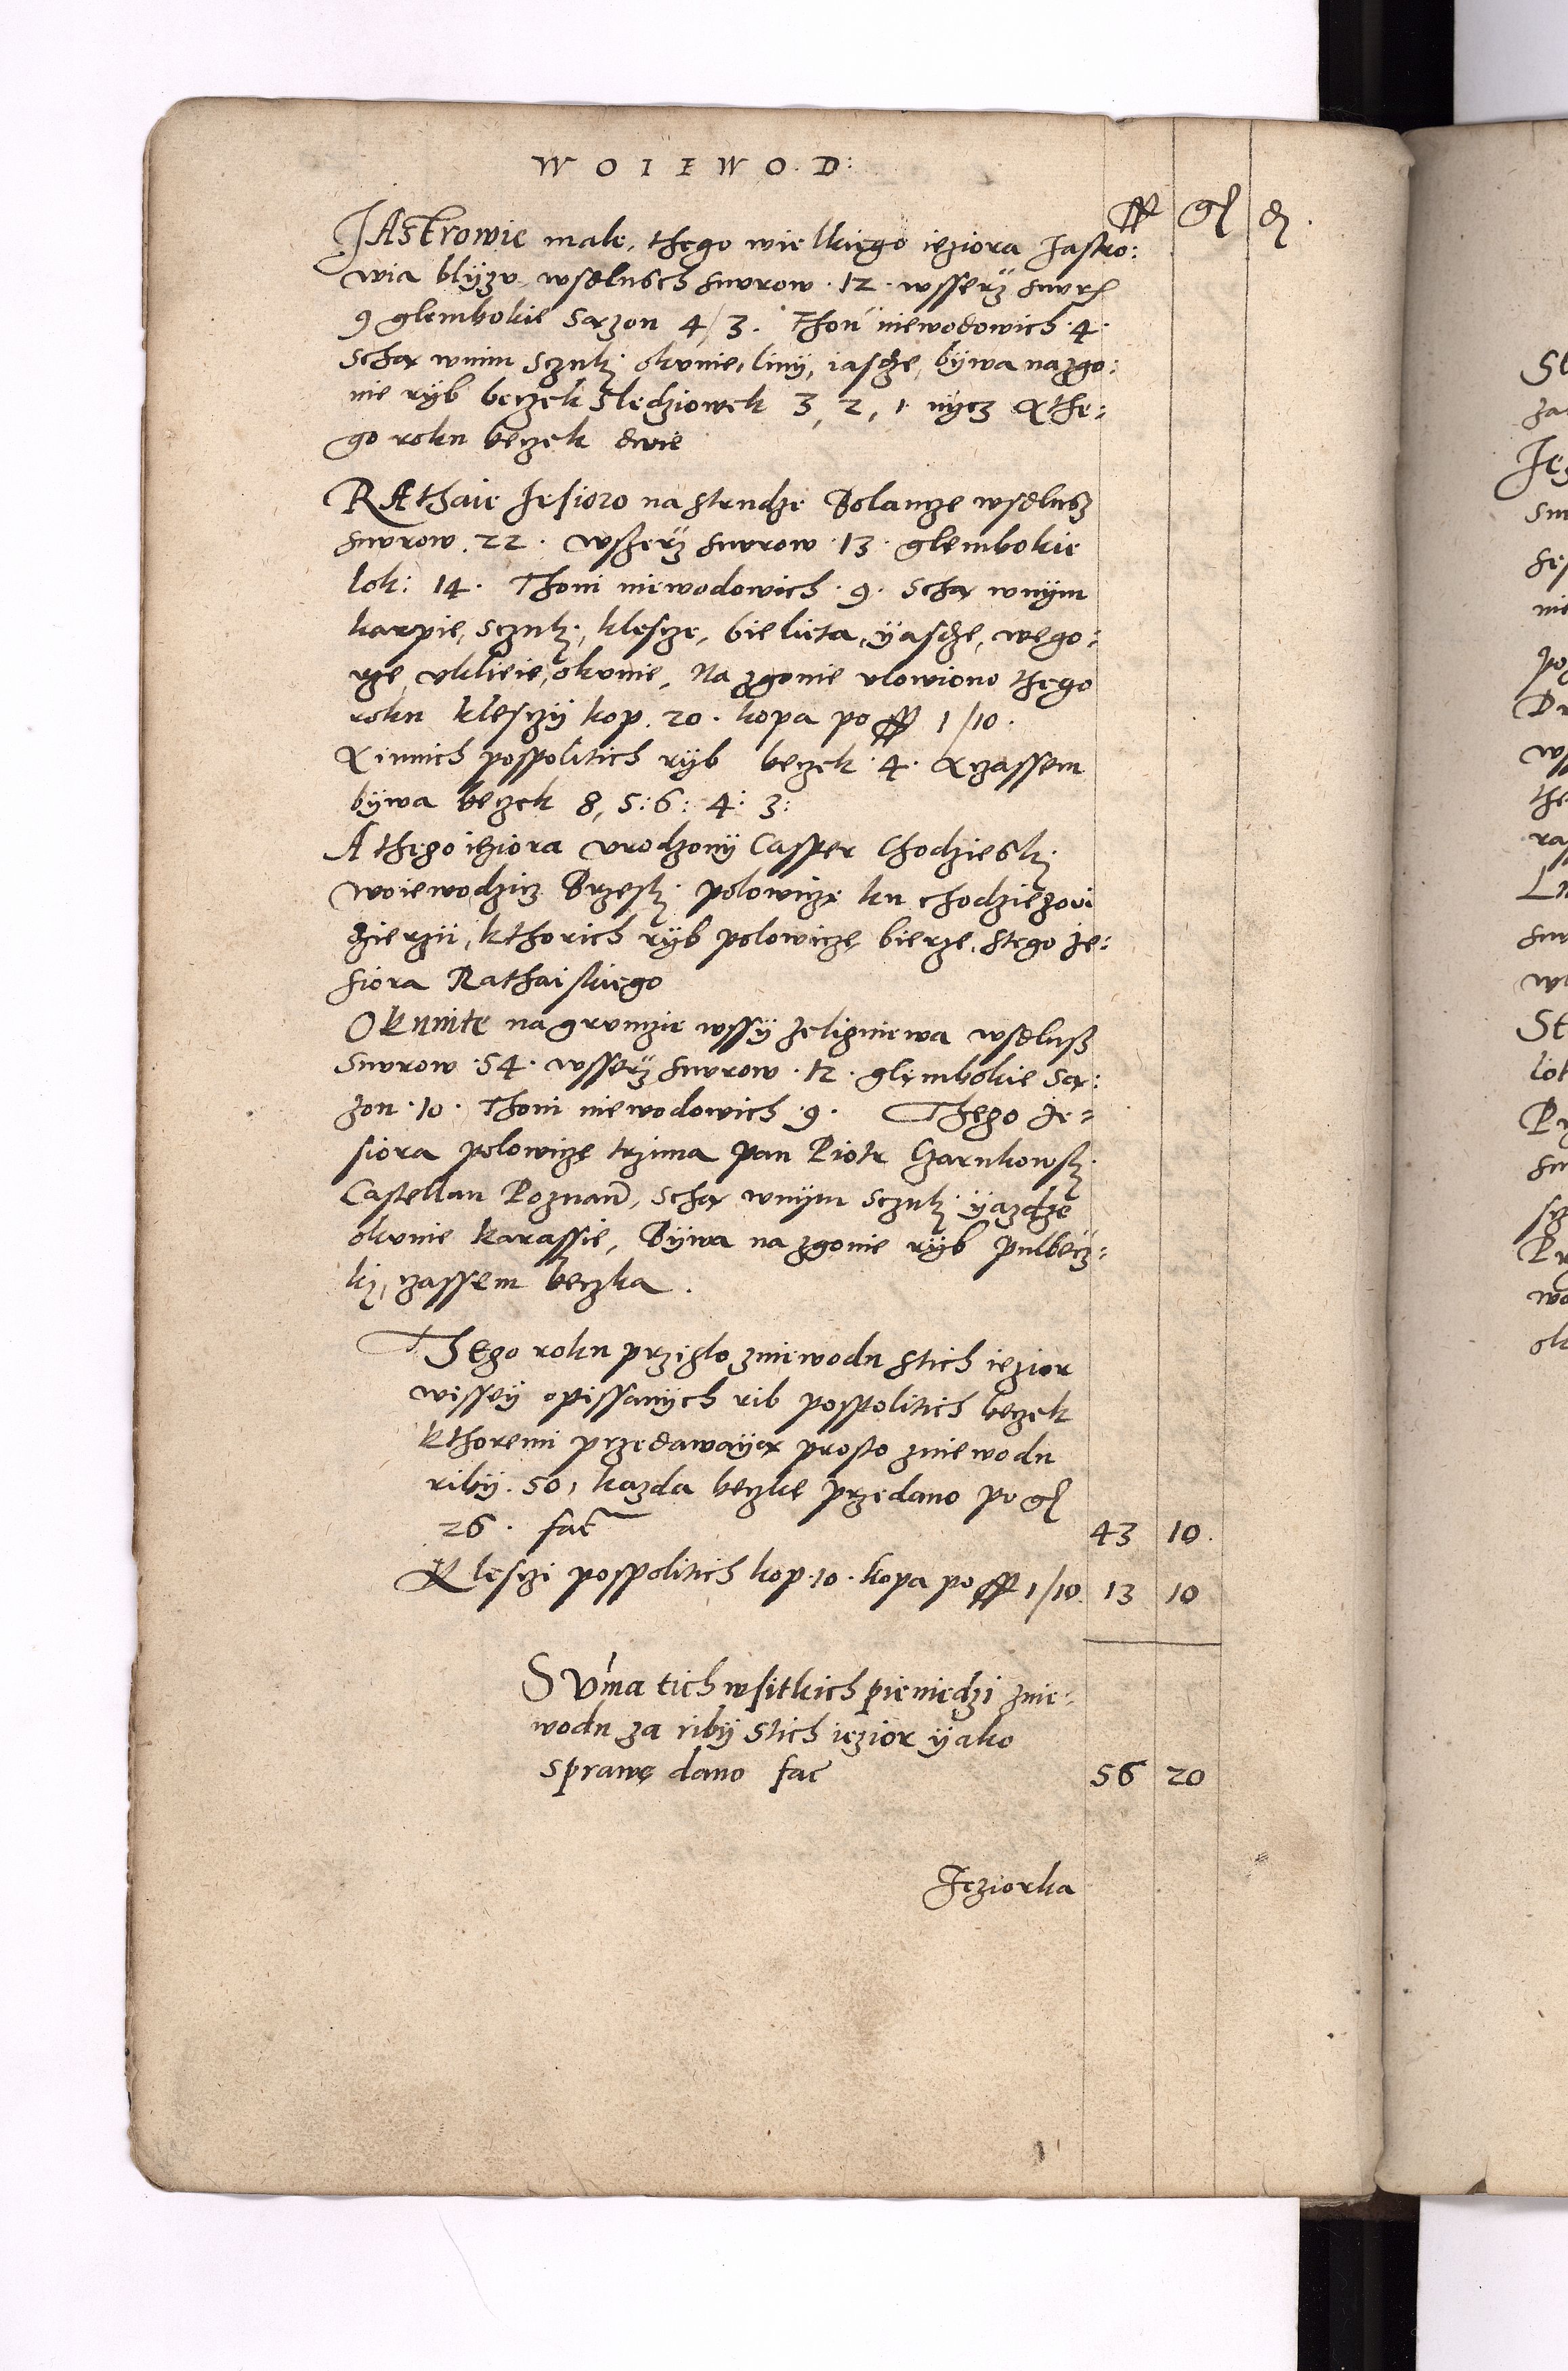 WOIEWOD:
ff gl d.
JAstrowie male, thego wielkiego ieziora Jastro:
wia blÿzu wsdlusch snurow · 12 · wsserz snur
9 glembokie sązon 4/3. Thon niewodowich · 4 ·
Scha wnim sczuk okunie, linÿ, iasdze, bÿwa na zgo:
nie rÿb beczek sledziowek 3, 2, 1 nÿcz A the:
go roku beczek dwie
RAthaie Jesioro na strudze Bolancze wsdlusz
snurow · 22 · wszerz snurow · 13 · glembokie
lok: 14 · Thoni niewodowich · 9 · Scha wnÿm
karpie, sczuk, klescze, bielizta, ÿasdze, wego:
rze, uklieie, okunie, Na zgonie ulowiono thego
roku klesczÿ kop · 20 · kopa po ff 1/10 ·
A innich pospolitich rÿb beczek · 4 · A czassem
bÿwa beczek 8, 5: 6: 4: 3:
A thego ieziora urodzonÿ Casper Chodziesk
woiewodzicz Brzesk polowicze ku chodziezowi
dzierzii, kthorich rÿb polowicze bierze, stego Je:
siora Rathaiskiego
Okunite na gruncie wssÿ zeligniewa wsdlusz
snurow · 54 · wsserz snurow · 12 · glembokie sa:
zon · 10 · Thoni niewodowich · 9 · Thego Je=
siora polowicze trzima pan Piotr Czarnkowsk
Castellan Poznan, scha wnÿm sczuk ÿazdze
okunie karassie, Bÿwa na zgonie rÿb pulbecz:
k, czassem beczka.
Thego roku przislo zniewodu stich iezior
wissej opissanÿch rib pospolitich beczek
kthoremi przedawaÿą prosto zniewodu
ribÿ · 50, kazda beczke przedano po gl
26 · fac 43 10.
Kleszi pospolitich kop · 10 · kopa po ff 1/10 13 10
SUma tich wsitkich pieniedzi znie:
wodu za ribÿ stich iezior ÿako
sprawe dano fac 56 20
Jeziorka